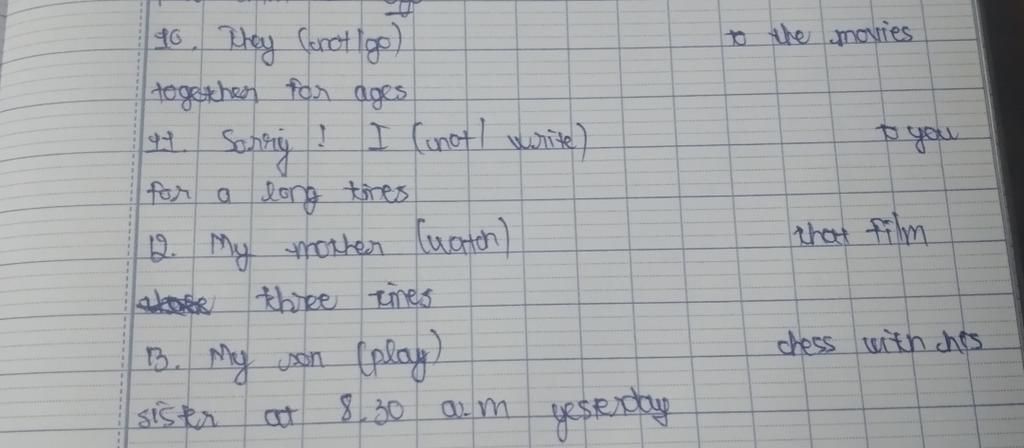 10. They (not/go) to the movies
together for ages
11. Sorry! I (not/ write) to you
for a long times
12. My mother (watch) that film
three times
13. My son (play) chess with his
sister at 8.30 a.m yesterday